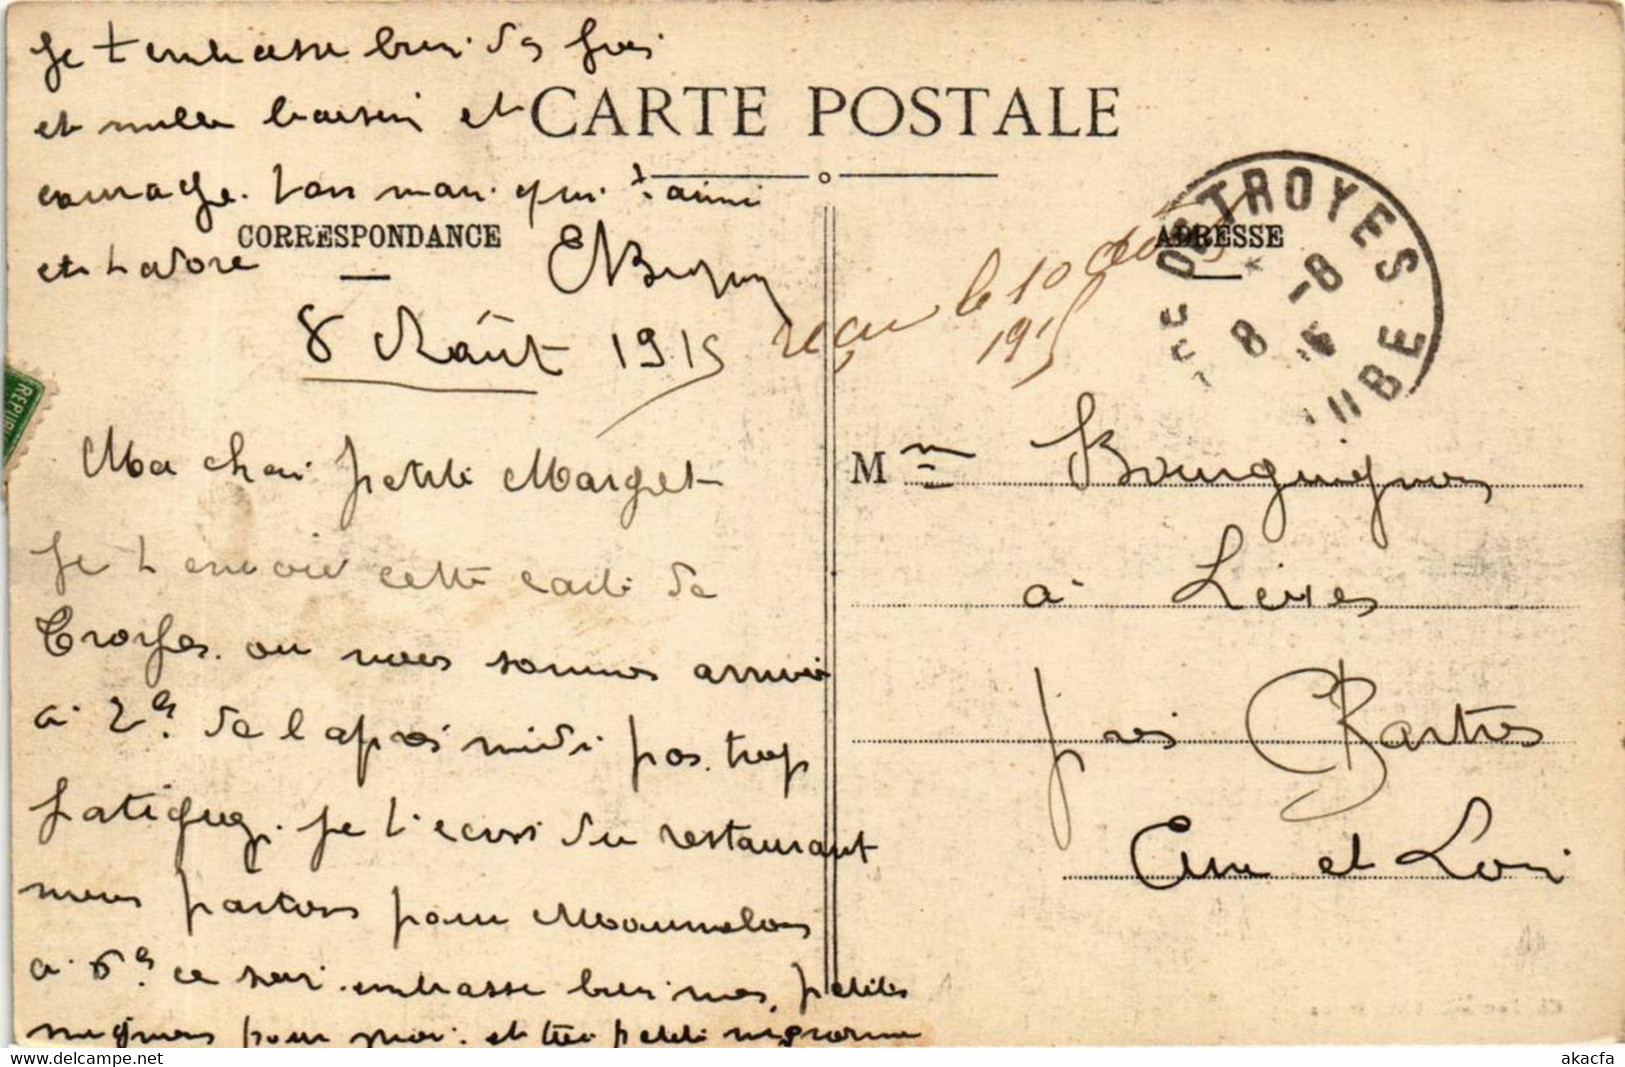 Je t embrasse bien des fois
et mille baisers et
courage. ton mari qui t aime
et t adore
CARTE POSTALE
CORRESPONDANCE
ADRESSE
DE TROYES
8 -8
15
AUBE
reçu le 10 août
1915
8 Août 1915
Ma cheri petite Marget
Je t envoie cette carte de
Troyes. ou nous sommes arrivé
a 2h. de l apres midi pas trop
fatiguez. je t ecris du restaurant
nous partons pour Mourmelons
a 6h ce soir. embrasse bien nos petites
mignons pour moi. et toi petite mignonne
Mme Bourguignon
a Lèves
près Chartres
Eure et Loir
REPU
akacfa